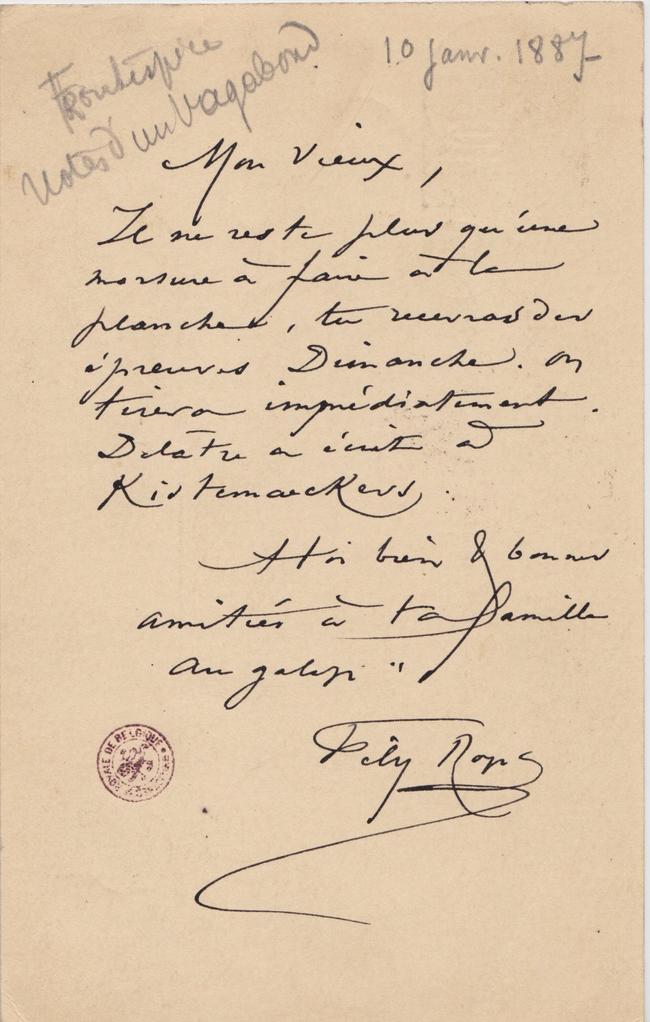 Frontispice
Notes d'un Vagabond
10 Janv. 1887
Mon Vieux,
Il ne reste plus qu'une
morsure à faire à la
planche, tu recevras des
épreuves Dimanche. on
tirera immédiatement.
Delâtre a écrit à
Kistemaeckers.
A toi bien & bonnes
amitiés à ta famille
au galop
Fély Rops
ROYALE DE BELGIQUE